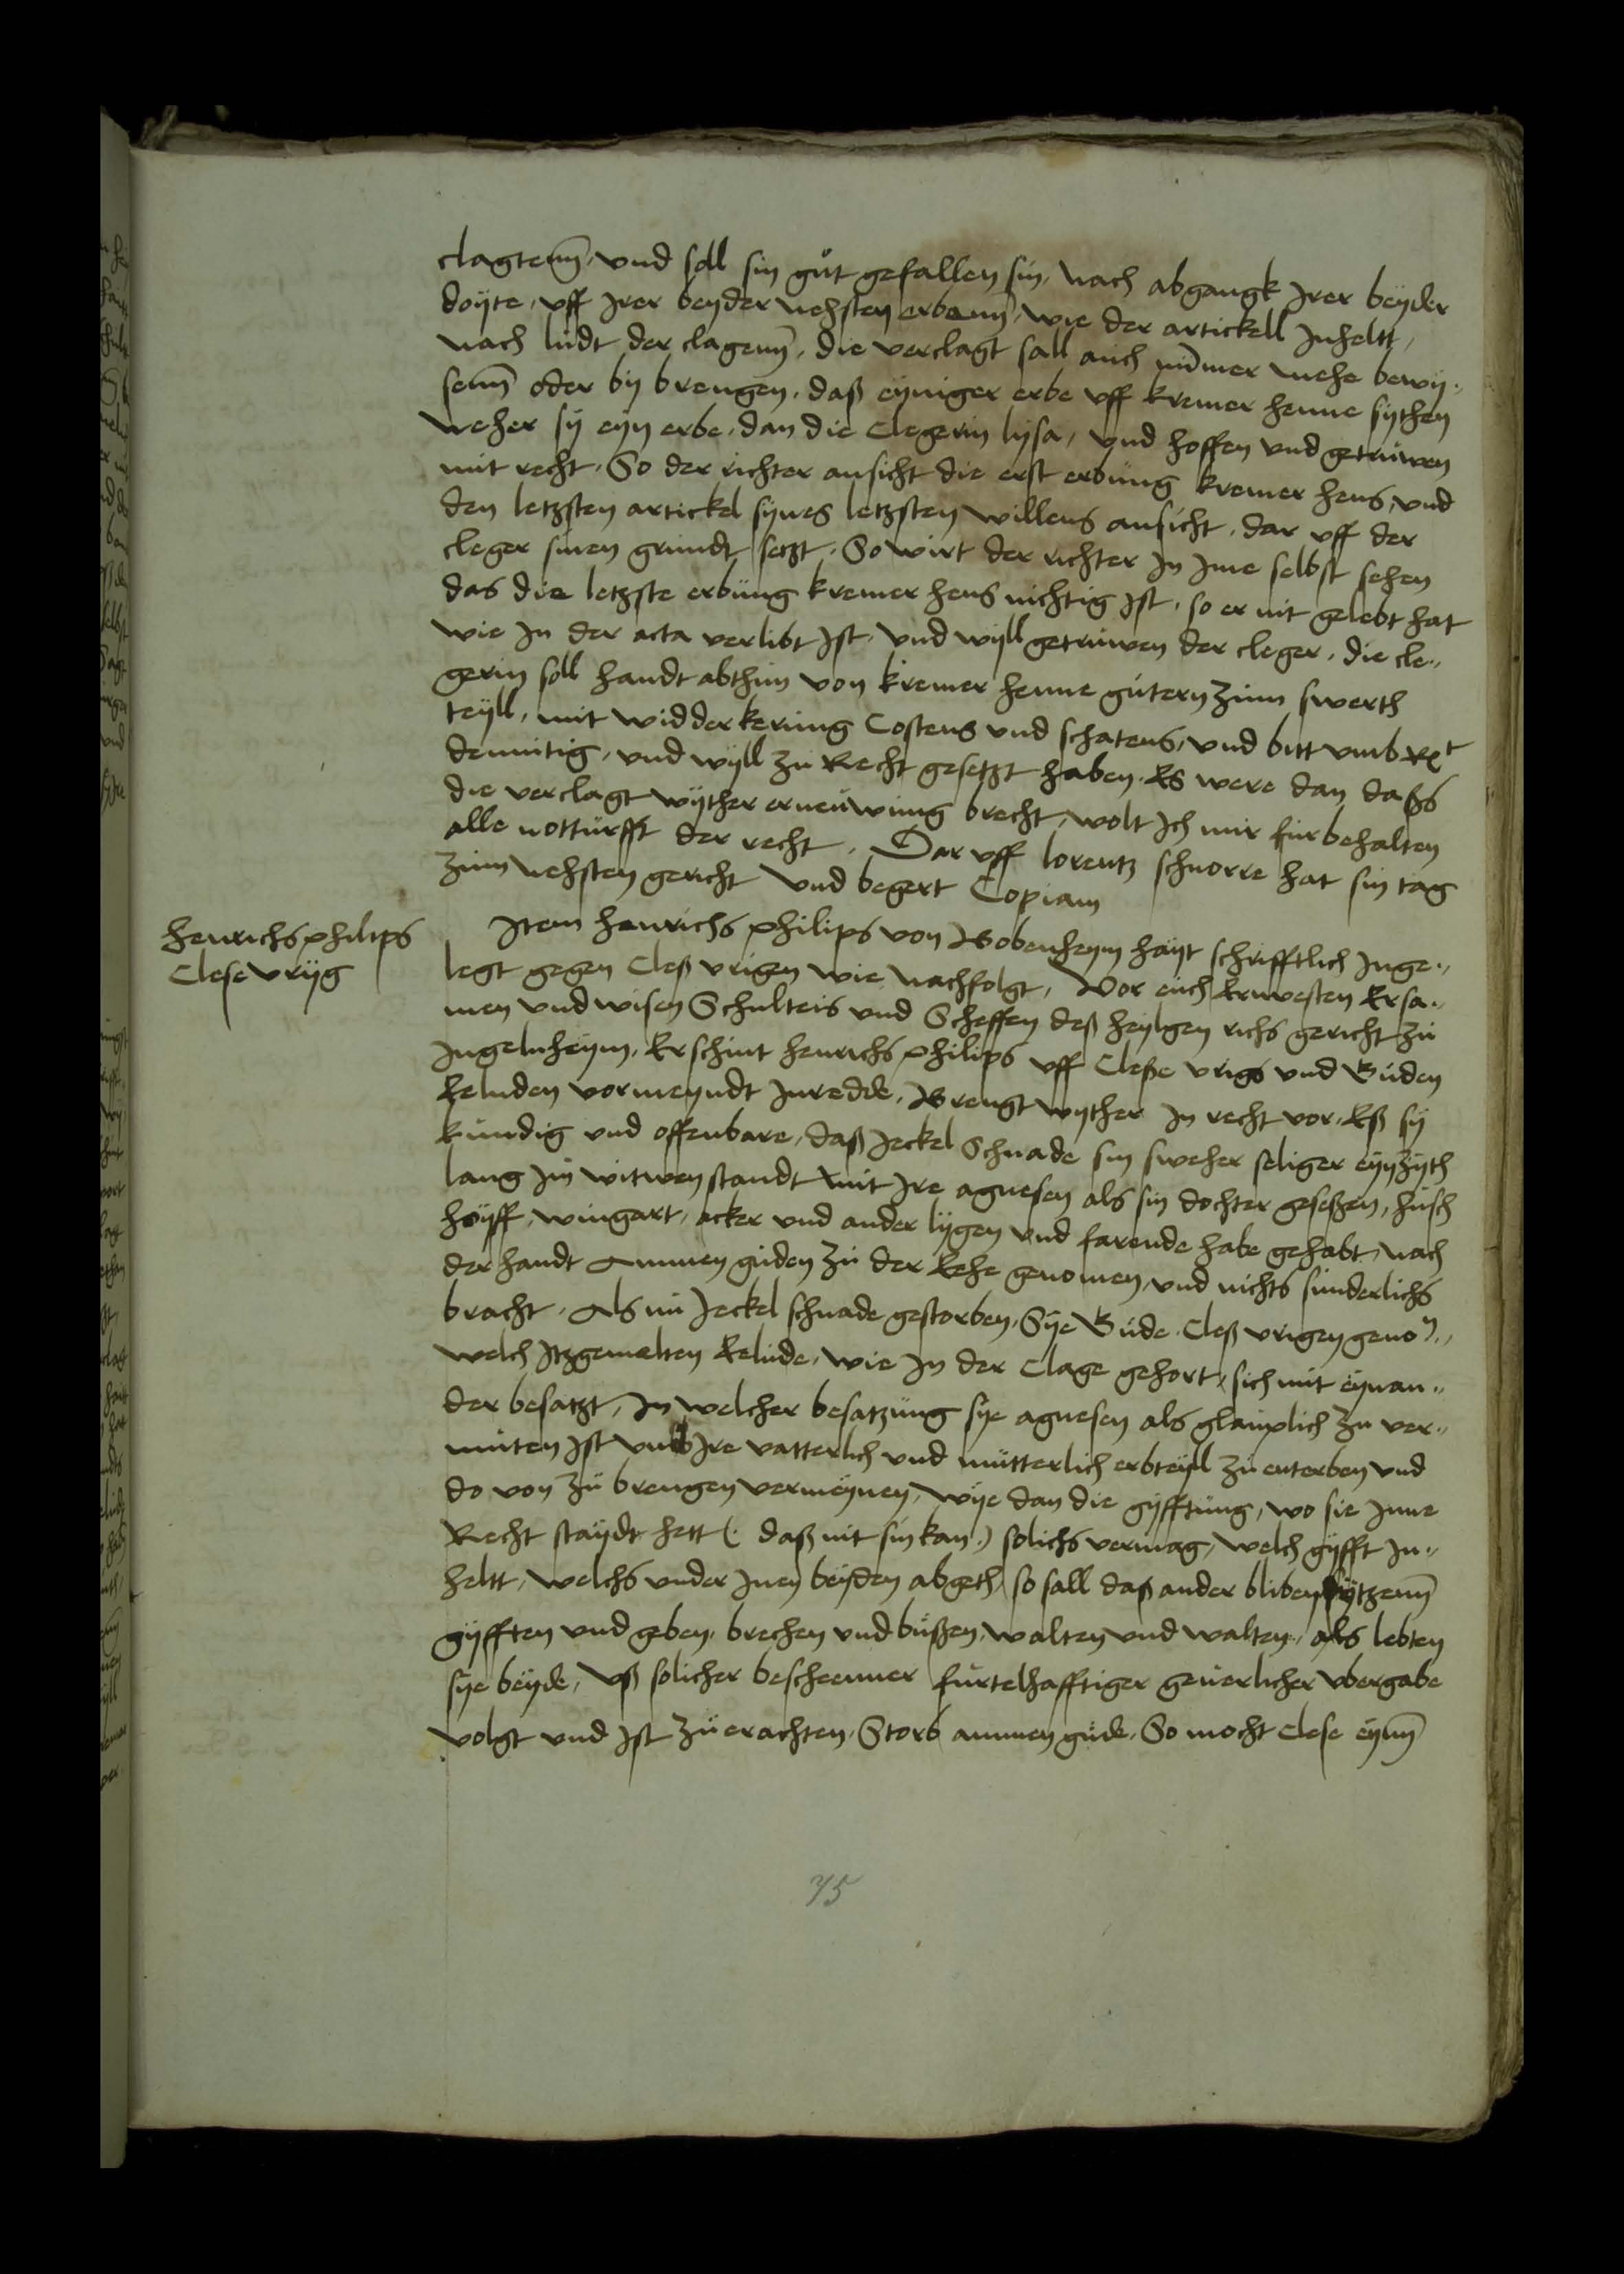 clagtenn, vnd soll sin gůt gefallen sin, nach abgangk Jrer beyder
doyte, vff Jrer beyder nehsten erbenn, wie der artickell Jnheltt,
nach ludt der clagenn, die verclagt sall auch nümer mehe bewy„
senn oder by brengen, daß eyniger erbe vff kremer henne sythen
neher sy eyn erbe, dan die Clegerin lysa, vnd hoffen vnd getruwen
mit recht, So der richter ansicht die erst erbung kremer hens, vnd
den letzsten artickel synes letzsten willens ansicht, dar vff der
cleger sinen grundt setzt, So wirt der richter Jn Jme selbst sehen
das die letzste erbüng kremer hens nichtig Jst, so er nit gelebt hat
wie Jn der acta verlibt Jst, vnd wyll getruwen der cleger, die cle„
gerin soll handt abthun von kremer henne gütern zum swerth
teyll, mit widderkerung Costens vnd schatens, vnd bitt vmb Rt
demutig, vnd wyll zu Recht gesetzt haben, Es were dan daßs
die verclagt wyther erneuwung brecht, wolt Jch mir fur behalten
alle notturfft der recht, Dar vff lorentz schnorre hat sin tag
zum nehsten gericht vnd begert Copiam
Henrichs philips
Clese vrijg
Jtem henrichs philips von Bobenheym hayt schrifftlich Jnge„
legt gegen Cleß vrigen wie nachfolgt, Vor euch Ernvesten Ersa„
men vnd wisen Schulteis vnd Scheffen deß heylgen richs gericht zu
Jngelnheym, Erschint henrichs philips vff Cleße vrigs vnd Guden
Eeluden vormeyndt Jnredde, Brengt wyther Jn recht vor, Eß sy
kundig vnd offenbare, daß Jeckel Schnade sin sweher seliger eyn zyth
lang Jm witwen standt mit Jre agnesen als sin dochter geseßen, husch
hoyff, wingart, acker vnd ander lygen vnd farende habe gehabt, nach
der handt Ammen guden zu der Eehe genomen, vnd nichts sunderlichs
bracht, Als nu Jeckel schnade gestorben, Sye Gude Cleß vrigen genom„
welch Jtzgemelten Eelude, wie Jn der Clage gehort, sich mit eynan„
der besatzt, Jn welcher besatzung sye agnesen als glauplich zu ver„
muten Jst vmb Jre vatterlich vnd mütterlich erbteyll zu enterben vnd
do von zu brengen vermeynen, wye dan die gyfftung, wo sie Jnne
Recht staydt hett (: daß nit sin kan :) solichs vermag, welch gyfft Jn„
heltt, welchs vnder Jnen beyden abgeth, so sall daß ander bliben sytzenn
gyfften vnd geben, brechen vnd büßen, walten vnd walten, als lebten
sye beyde, vß solicher bescheenner furtelhafftiger geuerlicher vbergabe
volgt vnd Jst zu erachten, Storb ammen gude, So mocht Clese eynn
75